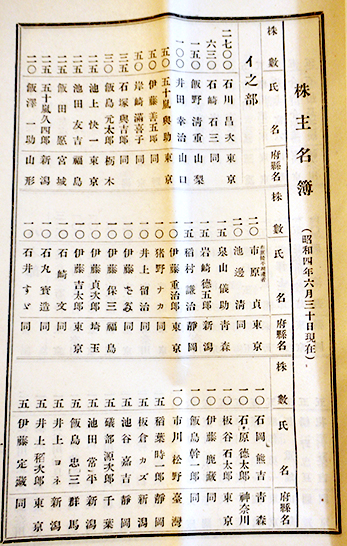 株主名簿
(昭和四年六月三十日現在)
株數 氏名 府縣名
イ之部
二七〇〇 石川昌次 東京
六三〇 石崎石三 同
一五〇 飯野清重 山梨
一〇〇 井田幸治 山口
五〇 五十嵐與助 東京
五〇 伊藤善五郎 同
五〇 岸崎滿喜子 同
三五 石塚與吉郎 同
三〇 飯島元太郎 栃木
二五 池上快一 東京
二五 池田友吉 福島
二五 飯田愿 宮城
二〇 五十嵐久四郎 新潟
二〇 飯澤一助 山形
株數 氏名 府縣名
二〇 市原貞 東京
二〇 池邊淸 同
一五 泉山儀助 青森
五 岩崎德五郎 新潟
五 稻村謙治 靜岡
一〇 伊藤重治郎 東京
一〇 猪野ナカ 同
一〇 井上留治 同
一〇 伊藤さゐ 同
一〇 伊藤保三 福島
一〇 伊藤貞次郎 埼玉
一〇 伊藤吉太郎 東京
一〇 石崎文 同
一〇 石丸實造 同
一〇 石井すゞ 同
株數 氏名 府縣名
一〇 石岡熊吉 青森
一〇 石原德太郎 神奈川
一〇 板谷石太郎 東京
一〇 伊藤鹿藏 同
一〇 飯島幹一郎 同
一〇 市川松野 臺灣
五 稻葉時一郎 靜岡
五 板倉カズ 新潟
五 池谷嘉吉 靜岡
五 礒部源次郎 千葉
五 池田常平 新潟
五 飯島忠三 群馬
五 井上ヨネ 新潟
五 井上稻次郎 東京
五 伊藤定藏 同